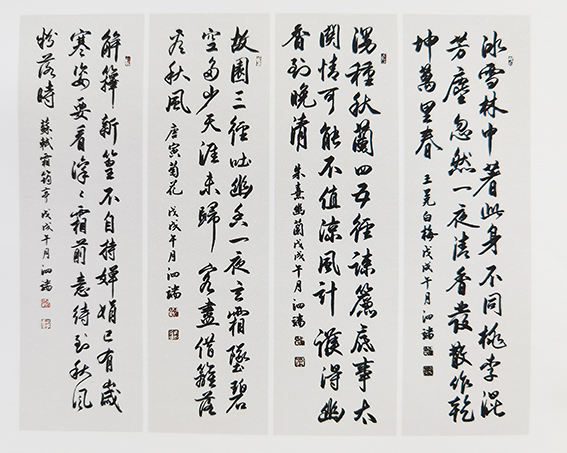 冰雪林中著此身不同桃李混
芳塵忽然一夜清香發散作乾
坤萬里春 王冕白梅戊戌午月泗端
漫種秋蘭四五徑疏簾底事太
關情可能不值涼風計護得幽
香到晚清 朱熹幽蘭戊戌午月泗端
故園三徑吐幽叢一夜玄霜墜碧
空多少天涯未歸客盡借籬落
看秋風 唐寅菊花 戊戌午月泗端
解籜新篁不自持嬋娟已有歲
寒姿要看凜〻霜前意待到秋風
粉落時 蘇軾霜筠亭 戊戌午月泗端